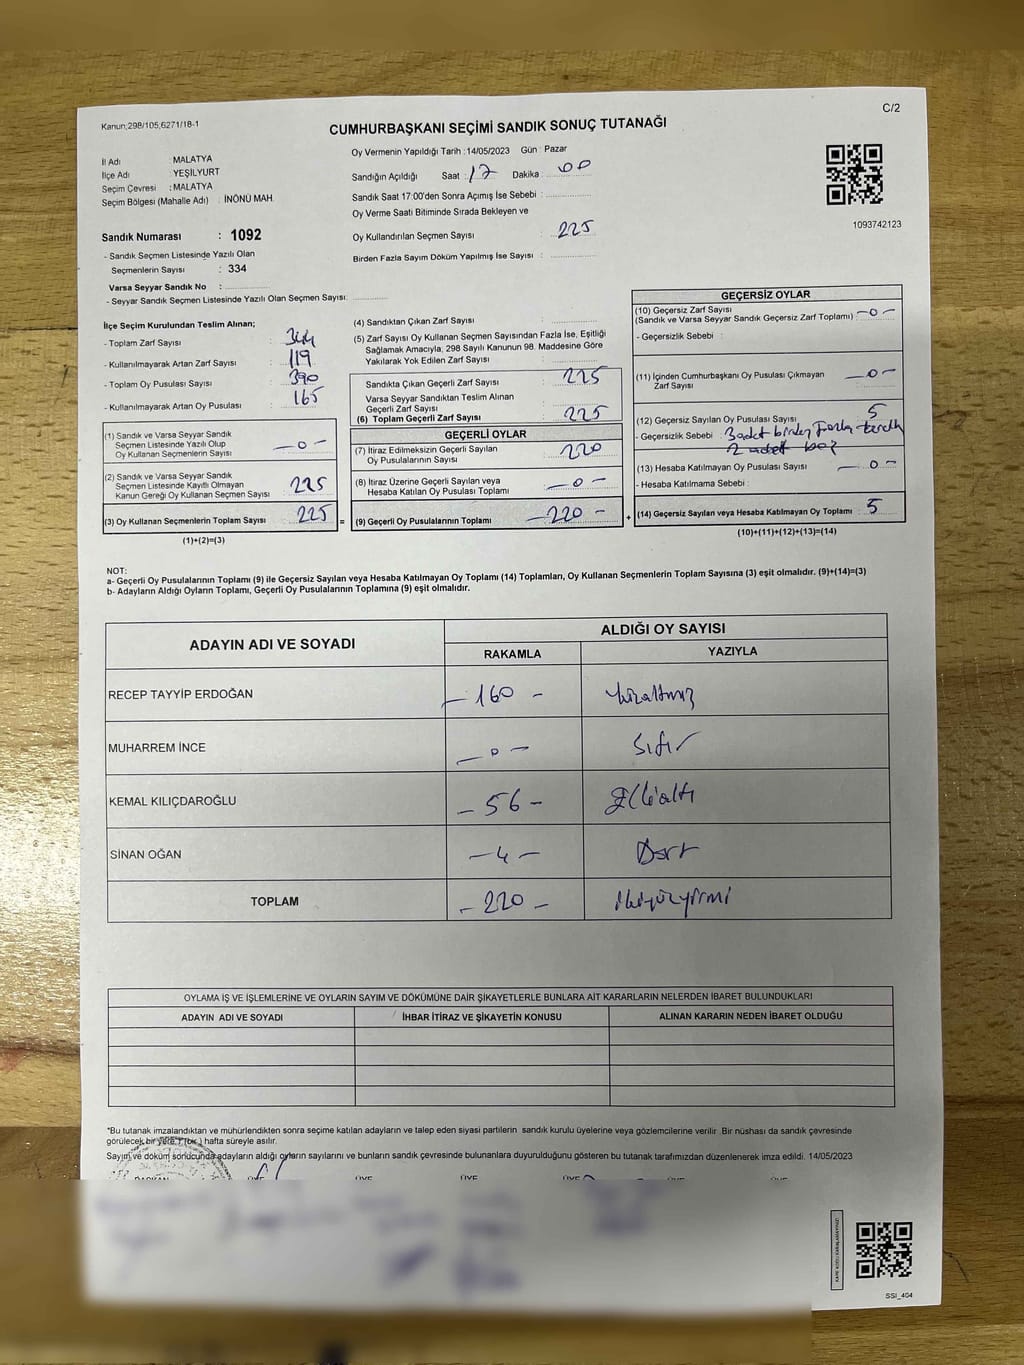 C/2
Kanun;298/105,6271/18-1
CUMHURBAŞKANI SEÇİMİ SANDIK SONUÇ TUTANAĞI
İl Adı : MALATYA
İlçe Adı : YEŞİLYURT
Seçim Çevresi : MALATYA
Seçim Bölgesi (Mahalle Adı) : İNÖNÜ MAH.
Sandık Numarası : 1092
- Sandık Seçmen Listesinde Yazılı Olan
Seçmenlerin Sayısı : 334
Varsa Seyyar Sandık No :
- Seyyar Sandık Seçmen Listesinde Yazılı Olan Seçmen Sayısı:
Oy Vermenin Yapıldığı Tarih :14/05/2023 Gün : Pazar
Sandığın Açıldığı Saat : 17 Dakika : 00
Sandık Saat 17:00'den Sonra Açımış İse Sebebi :
Oy Verme Saati Bitiminde Sırada Bekleyen ve
Oy Kullandırılan Seçmen Sayısı : 225
Birden Fazla Sayım Döküm Yapılmış İse Sayısı :
1093742123
İlçe Seçim Kurulundan Teslim Alınan;
- Toplam Zarf Sayısı : 344
- Kullanılmayarak Artan Zarf Sayısı : 119
- Toplam Oy Pusulası Sayısı : 390
- Kullanılmayarak Artan Oy Pusulası : 165
(1) Sandık ve Varsa Seyyar Sandık
Seçmen Listesinde Yazılı Olup
Oy Kullanan Seçmenlerin Sayısı : -0-
(2) Sandık ve Varsa Seyyar Sandık
Seçmen Listesinde Kayıtlı Olmayan
Kanun Gereği Oy Kullanan Seçmen Sayısı : 225
(3) Oy Kullanan Seçmenlerin Toplam Sayısı : 225 =
(1)+(2)=(3)
(4) Sandıktan Çıkan Zarf Sayısı :
(5) Zarf Sayısı Oy Kullanan Seçmen Sayısından Fazla İse, Eşitliği
Sağlamak Amacıyla, 298 Sayılı Kanunun 98. Maddesine Göre
Yakılarak Yok Edilen Zarf Sayısı :
Sandıkta Çıkan Geçerli Zarf Sayısı : 225
Varsa Seyyar Sandıktan Teslim Alınan
Geçerli Zarf Sayısı :
(6) Toplam Geçerli Zarf Sayısı : 225
GEÇERLİ OYLAR
(7) İtiraz Edilmeksizin Geçerli Sayılan
Oy Pusulasının Sayısı : 220
(8) İtiraz Üzerine Geçerli Sayılan veya
Hesaba Katılan Oy Pusulası Toplamı : -0-
(9) Geçerli Oy Pusulalarının Toplamı : -220- +
GEÇERSİZ OYLAR
(10) Geçersiz Zarf Sayısı
(Sandık ve Varsa Seyyar Sandık Geçersiz Zarf Toplamı) : -0-
- Geçersizlik Sebebi :
(11) İçinden Cumhurbaşkanı Oy Pusulası Çıkmayan
Zarf Sayısı : -0-
(12) Geçersiz Sayılan Oy Pusulası Sayısı : 5
- Geçersizlik Sebebi : 3 adet birden fazla tercih
2 adet boş
(13) Hesaba Katılmayan Oy Pusulası Sayısı : -0-
- Hesaba Katılmama Sebebi :
(14) Geçersiz Sayılan veya Hesaba Katılmayan Oy Toplamı : 5
(10)+(11)+(12)+(13)=(14)
NOT:
a- Geçerli Oy Pusulalarının Toplamı (9) ile Geçersiz Sayılan veya Hesaba Katılmayan Oy Toplamı (14) Toplamları, Oy Kullanan Seçmenlerin Toplam Sayısına (3) eşit olmalıdır. (9)+(14)=(3)
b- Adayların Aldığı Oyların Toplamı, Geçerli Oy Pusulalarının Toplamına (9) eşit olmalıdır.
ADAYIN ADI VE SOYADI ALDIĞI OY SAYISI
RAKAMLA YAZIYLA
RECEP TAYYİP ERDOĞAN -160- Yüzaltmış
MUHARREM İNCE -0- Sıfır
KEMAL KILIÇDAROĞLU -56- Ellialtı
SİNAN OĞAN -4- Dört
TOPLAM -220- ikiyüzyirmi
OYLAMA İŞ VE İŞLEMLERİNE VE OYLARIN SAYIM VE DÖKÜMÜNE DAİR ŞİKAYETLERLE BUNLARA AİT KARARLARIN NELERDEN İBARET BULUNDUKLARI
ADAYIN ADI VE SOYADI İHBAR İTİRAZ VE ŞİKAYETİN KONUSU ALINAN KARARIN NEDEN İBARET OLDUĞU
*Bu tutanak imzalandıktan ve mühürlendikten sonra seçime katılan adayların ve talep eden siyasi partilerin sandık kurulu üyelerine veya gözlemcilerine verilir .Bir nüshası da sandık çevresinde
görülecek bir yere 1 (bir ) hafta süreyle asılır.
Sayım ve döküm sonucunda adayların aldığı oyların sayılarını ve bunların sandık çevresinde bulunanlara duyurulduğunu gösteren bu tutanak tarafımızdan düzenlenerek imza edildi. 14/05/2023
BAŞKAN ÜYE ÜYE ÜYE ÜYE ÜYE ÜYE
SSI_404